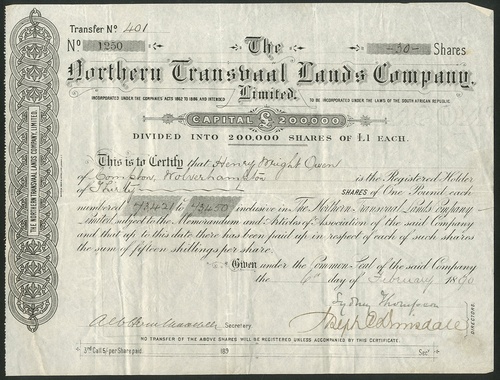 Transfer No 401
No 1250
-30- Shares
The
Northern Transvaal Lands Company,
Limited.
INCORPORATED UNDER THE COMPANIES ACTS 1862 TO 1886, AND INTENDED
TO BE INCORPORATED UNDER THE LAWS OF THE SOUTH AFRICAN REPUBLIC.
CAPITAL £ 200,000
DIVIDED INTO 200,000 SHARES OF £1 EACH.
This is to Certify that Henry Wright Owen
of Compton, Wolverhampton is the Registered Holder
of Thirty SHARES of One Pound each
numbered 43421 to 43450 inclusive in The Northern Transvaal Lands Company
Limited subject to the Memorandum and Articles of Association of the said Company
and that up to this date there has been paid up in respect of each of such shares
the sum of fifteen shillings per share.
Given under the Common Seal of the said Company
the 6th day of February 1890
Sydney Thompson
Secretary
DIRECTORS.
NO TRANSFER OF THE ABOVE SHARES WILL BE REGISTERED UNLESS ACCOMPANIED BY THIS CERTIFICATE.
3rd Call 5/- per Share paid. 189 Secy.
THE NORTHERN TRANSVAAL LANDS COMPANY, LIMITED.